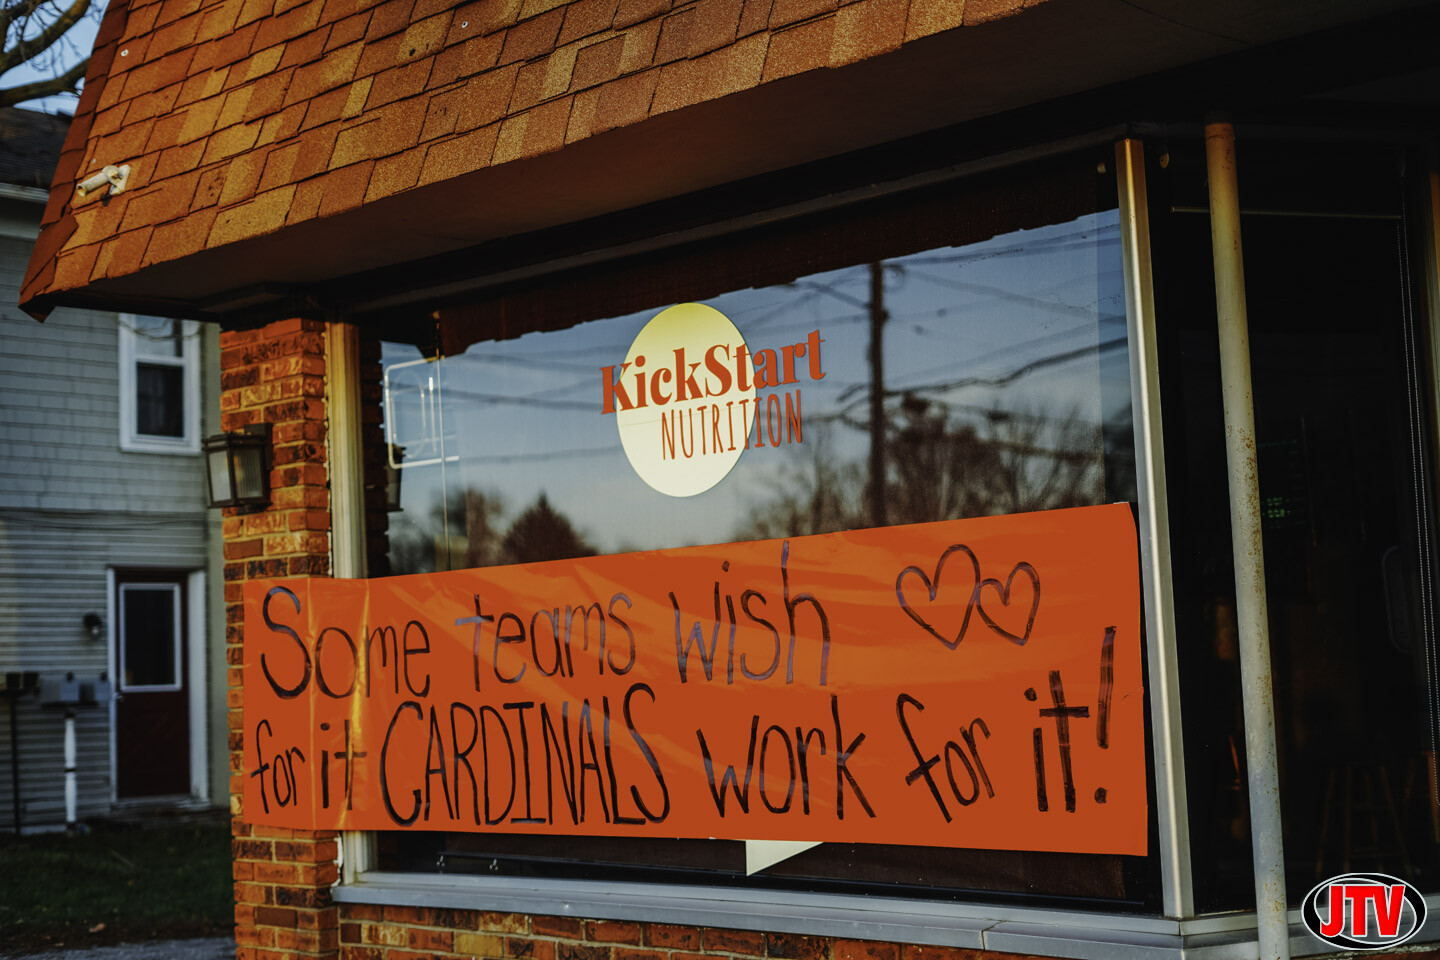 KickStart
NUTRITION
Some teams wish
for it CARDINALS work for it!
JTV